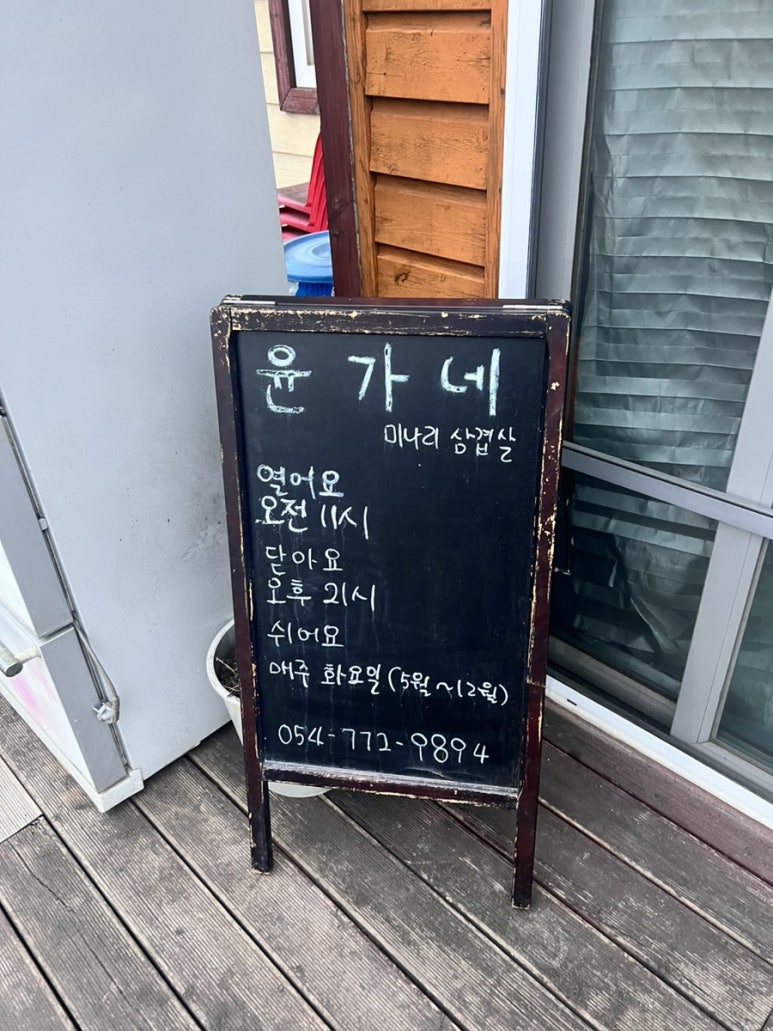 윤가네
미나리 삼겹살
열어요
오전 11시
닫아요
오후 21시
쉬어요
매주 화요일(5월~12월)
054-772-9894